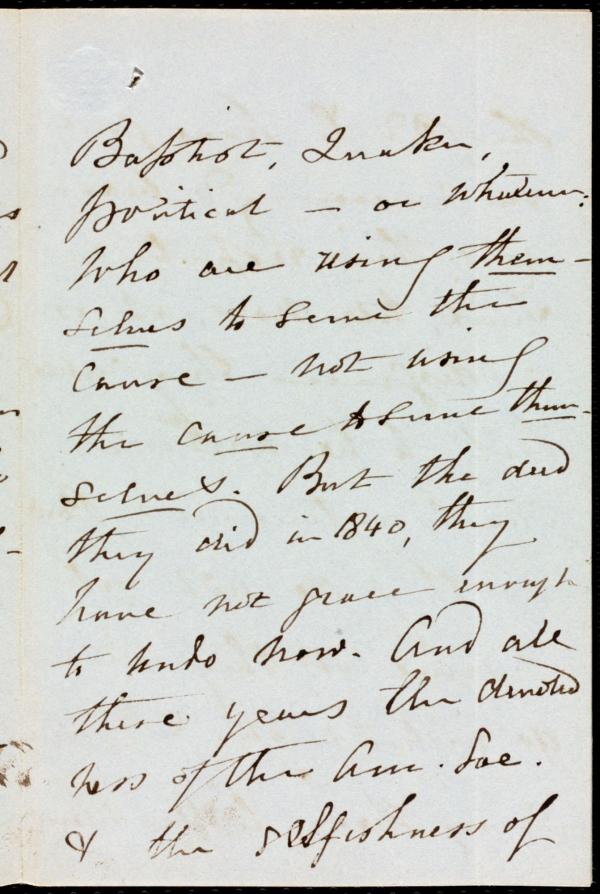 Baptist, Quaker,
political — or whatever:
who are using them-
selves to serve the
cause — not using
the cause to serve them-
selves. But the deed
they did in 1840, they
have not grace enough
to undo now. And all
these years the devoted
ness of the Am. Soc.
& the selfishness of